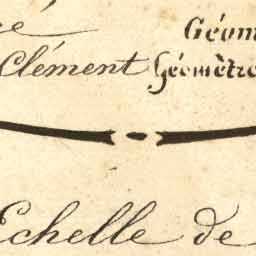 Géom
Clément Géomètre
Echelle de